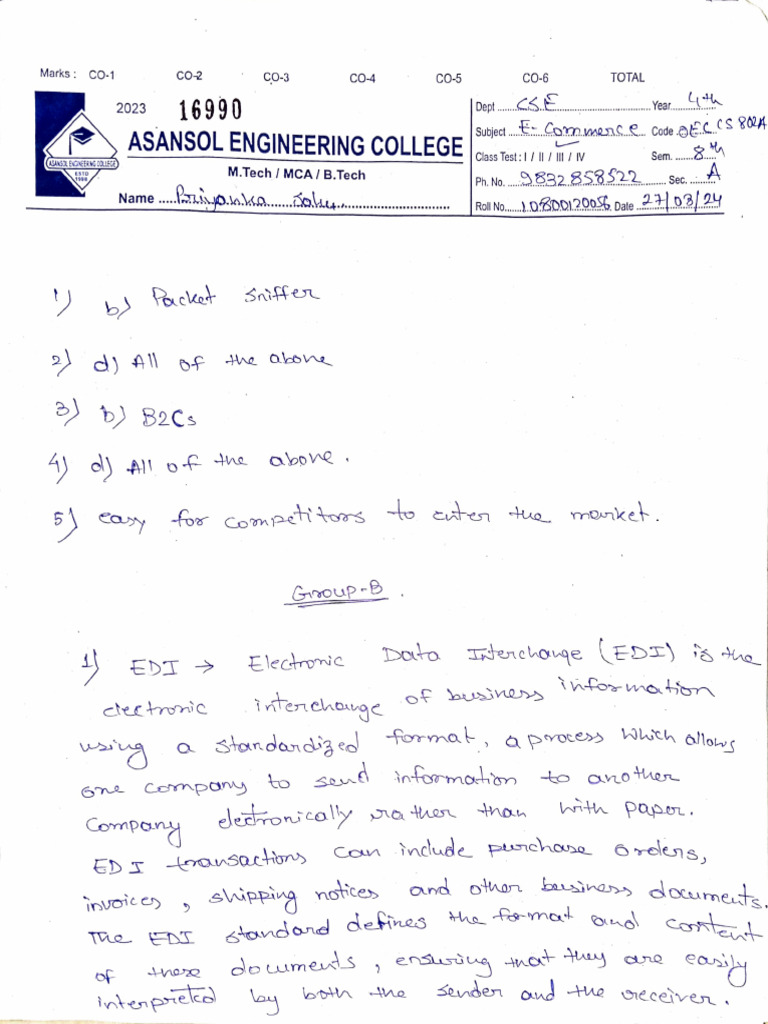 Marks : CO-1 CO-2 CO-3 CO-4 CO-5 CO-6 TOTAL
2023 16990
ASANSOL ENGINEERING COLLEGE
M.Tech / MCA / B.Tech
Name Priyanka Sahu
ASANSOL ENGINEERING COLLEGE
ESTD
1998
Dept CSE Year 4th
Subject E-Commerce Code OEC CS 802A
Class Test : I / II / III / IV Sem. 8th
Ph. No. 9832858522 Sec. A
Roll No. 10800120056 Date 27/03/24
1) b) Packet Sniffer
2) d) All of the above
3) b) B2Cs
4) d) All of the above.
5) easy for competitors to enter the market.
Group-B.
1) EDI → Electronic Data Interchange (EDI) is the
electronic interchange of business information
using a standardized format, a process which allows
one company to send information to another
company electronically rather than with paper.
EDI transactions can include purchase orders,
invoices, shipping notices and other business documents.
The EDI standard defines the format and content
of these documents, ensuring that they are easily
interpreted by both the sender and the receiver.